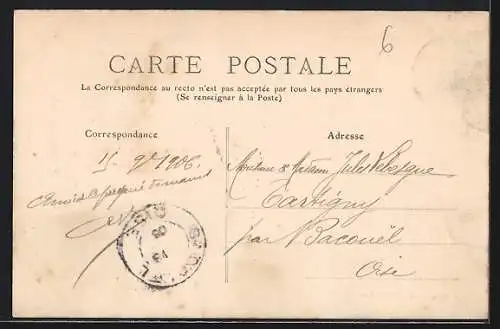 6
CARTE POSTALE
La Correspondance au recto n'est pas acceptée par tous les pays étrangers
(Se renseigner à la Poste)
Correspondance
Adresse
15 - 9bre 1906.
Monsieur & Madame Jules Levesque
Tartigny
par Bacouël
Oise